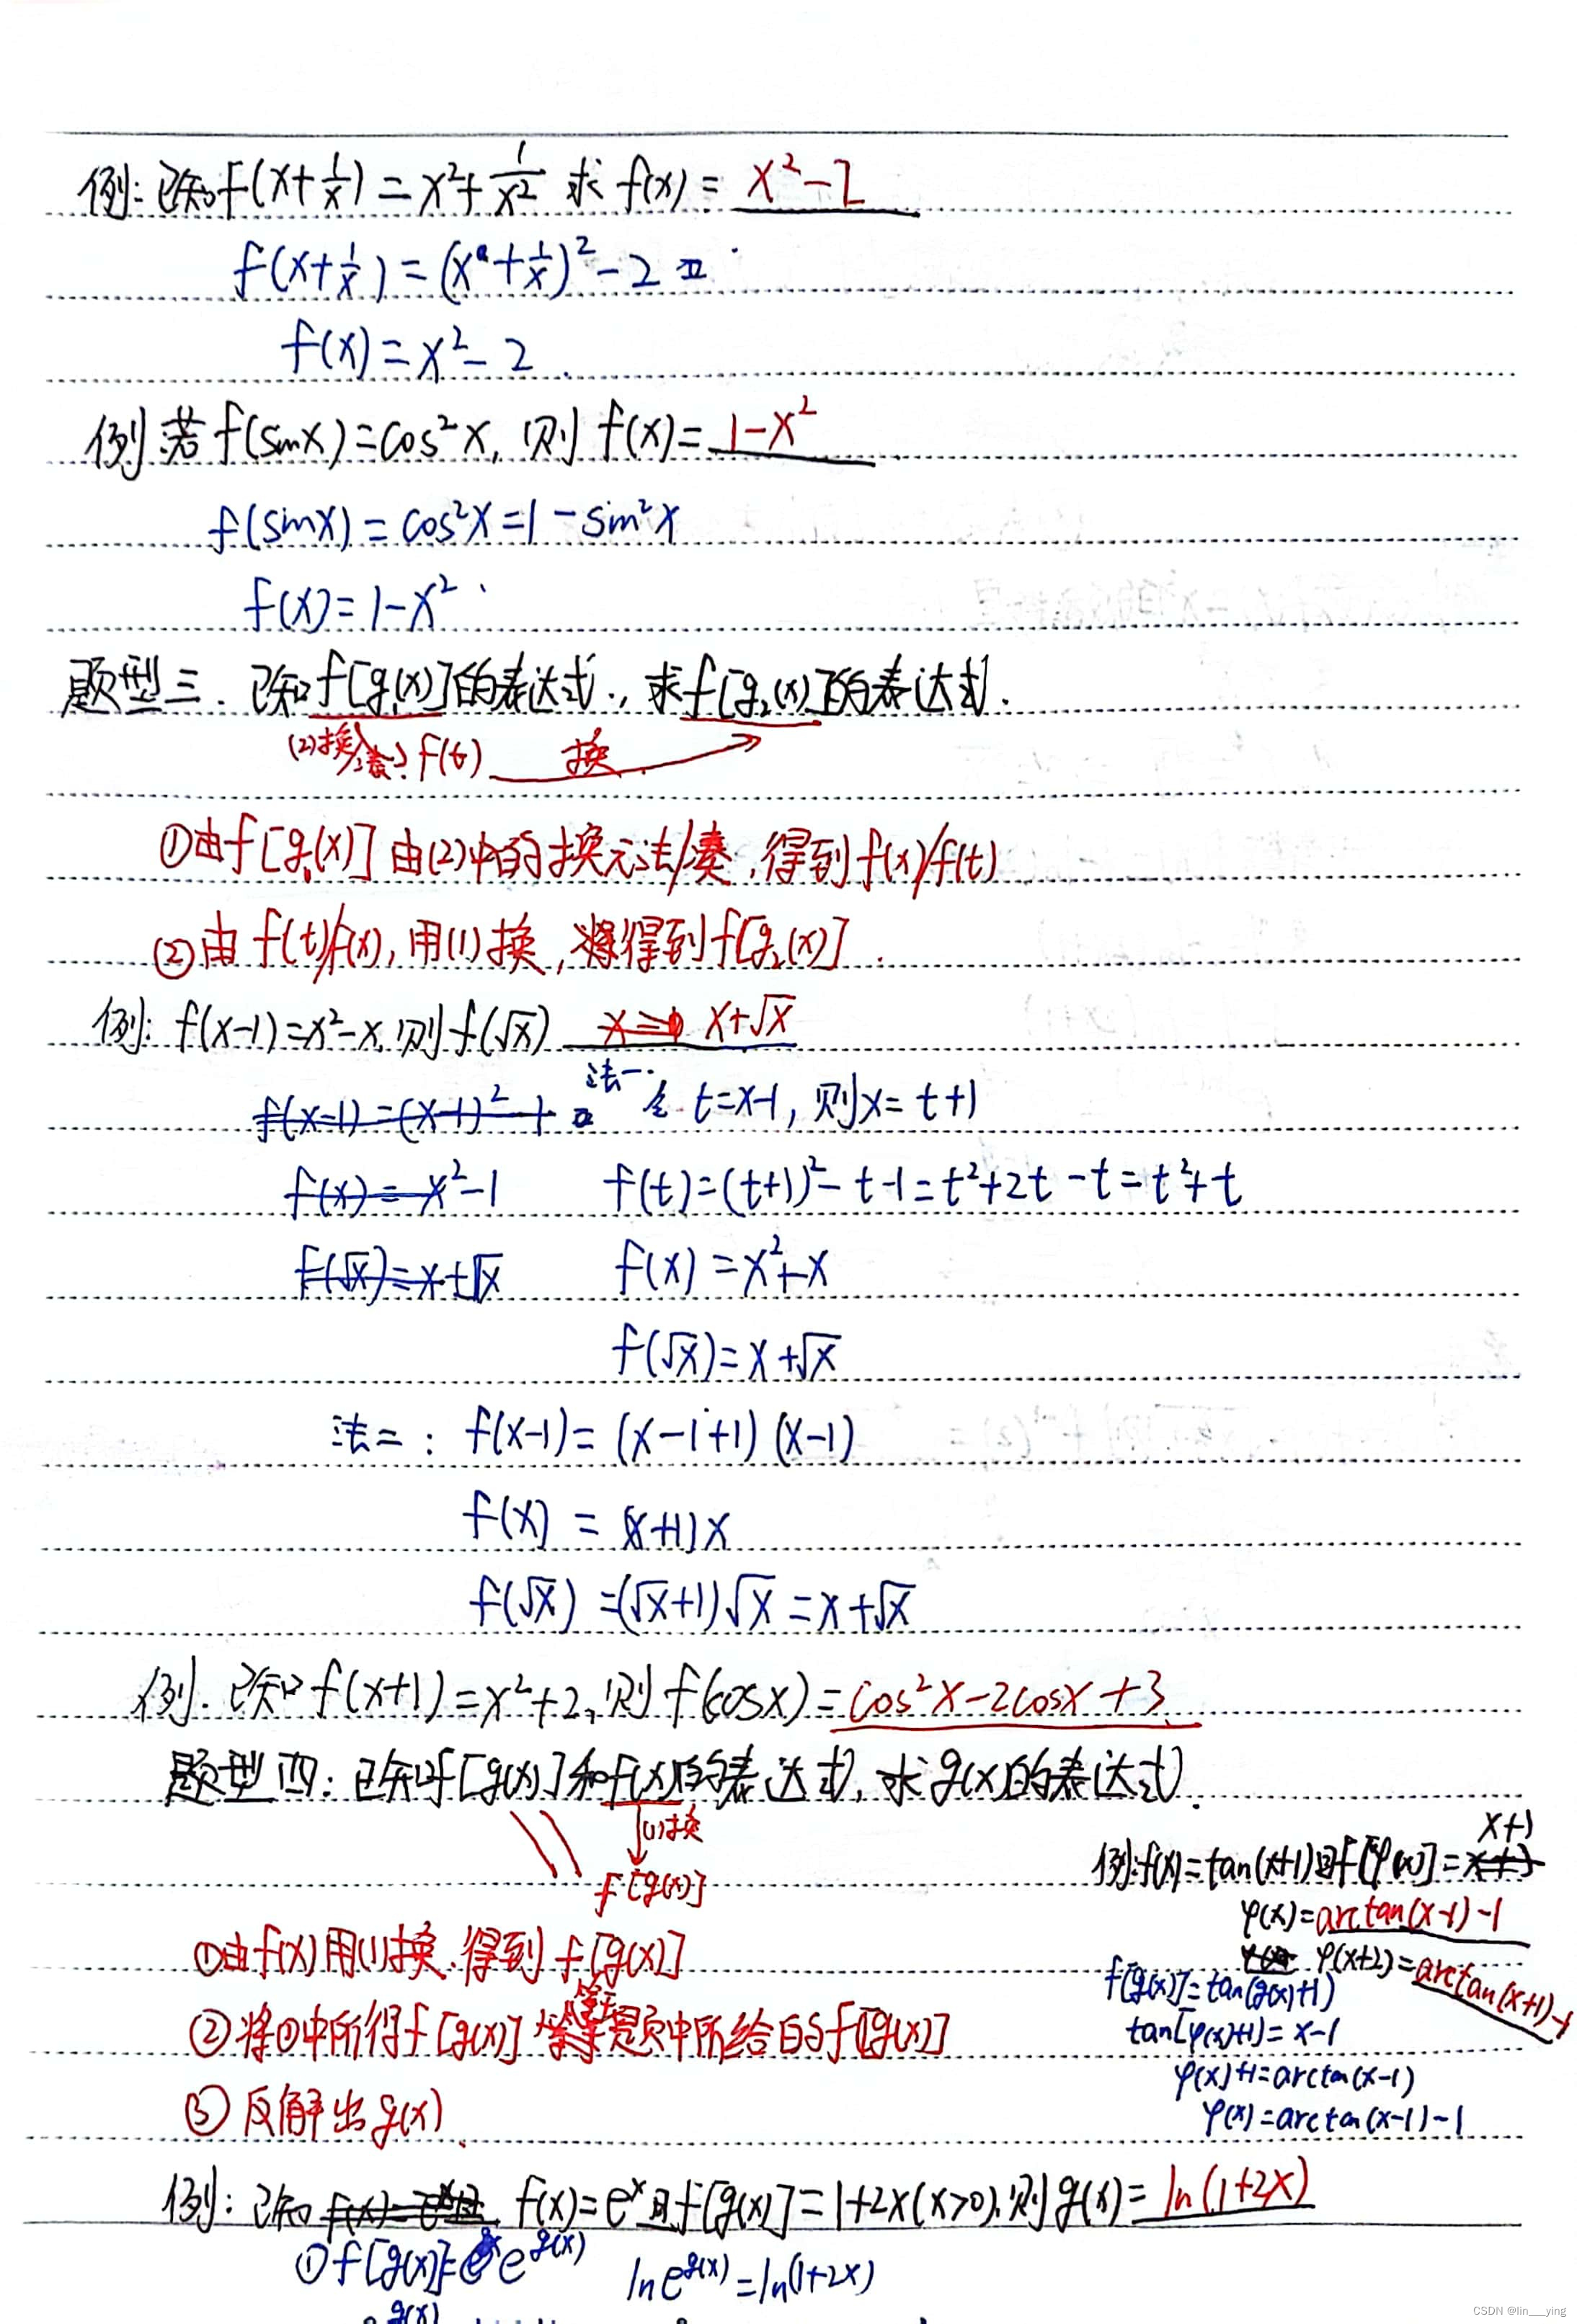 例:已知f(x+1/x)=x²+1/x² 求 f(x)= x²-2
f(x+1/x)=(x+1/x)²-2
f(x)=x²-2.
例 若f(sinx)=cos²x, 则 f(x)= 1-x²
f(sinx)=cos²x=1-sin²x
f(x)=1-x²
题型三. 已知f[g₁(x)]的表达式., 求f[g₂(x)]的表达式.
(2)换/凑 f(t) 换
①由f[g₁(x)] 由(2)中的换元法/凑,得到f(x)/f(t)
②由 f(t)/f(x), 用(1)换, 得到f[g₂(x)].
例: f(x-1)=x²-x, 则f(√x) x≥0 x+√x
f(x-1)=(x-1)²-1 法一: 令 t=x-1, 则x=t+1
f(x)=x²-1 f(t)=(t+1)²-t-1=t²+2t-t=t²+t
f(√x)=x+√x f(x)=x²+x
f(√x)=x+√x
法二: f(x-1)=(x-1+1)(x-1)
f(x)=(x+1)x
f(√x)=(√x+1)√x=x+√x
例. 已知f(x+1)=x²+2, 则f(cosx)=cos²x-2cosx+3
题型四: 已知f[g(x)]和f(x)的表达式, 求g(x)的表达式.
(1)换
f[g(x)]
①由f(x)用(1)换.得到 f[g(x)]
②将①中所得f[g(x)] 等于题中所给的f[g(x)]
③反解出g(x).
例:f(x)=tan(x+1)且f[φ(x)]= x+1
φ(x)=arctan(x-1)-1
φ(x+2)=arctan(x+1)-1
f[g(x)]=tan(g(x)+1)
tan[φ(x)+1]=x-1
φ(x)+1=arctan(x-1)
φ(x)=arctan(x-1)-1
例: 已知 f(x)=eˣ且f[g(x)]=1+2x(x>0).则g(x)= ln(1+2x)
①f[g(x)]=e^g(x) lne^g(x)=ln(1+2x)
CSDN @lin___ying